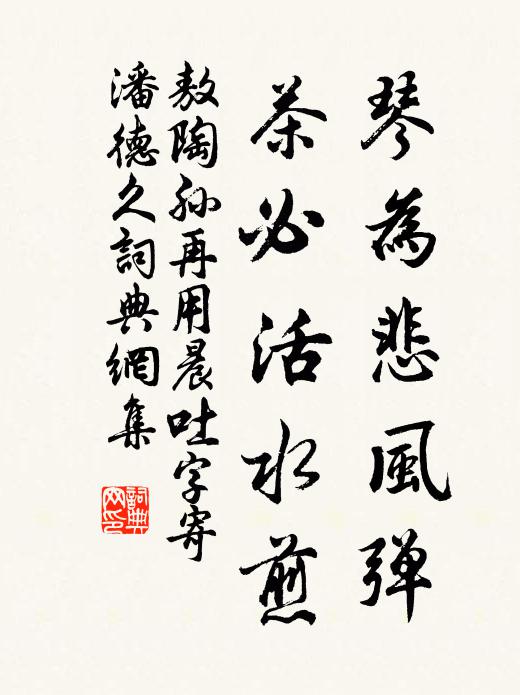 琴為悲風弹
茶必活水煎
敖陶孫再用晨吐字寄
潘德久詞典網集
詞典网印